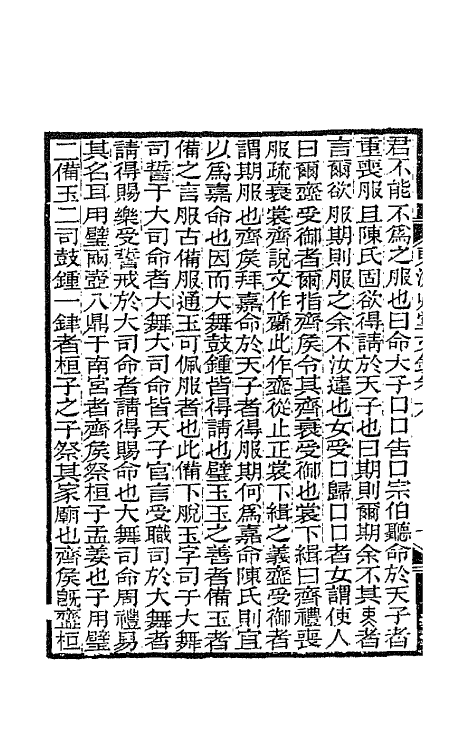 君不能不爲之服也曰命大子囗囗告囗宗伯聽命於天子者
重喪服且陳氏固欲得請於天子也曰期則爾期余不其者
言爾欲服期則服之余不汝違也女受囗歸囗囗者女謂使人
曰爾齍受御者爾指齊矦令其齊衰受御也裳下緝曰齊禮喪
服疏衰裳齊說文作齌此作齍從止正裳下緝之義齍受御者
謂期服也齊矦拜嘉命於天子者得服期何爲嘉命陳氏則宜
以爲嘉命也因而大舞鼓鍾皆得請也璧玉玉之善者備玉者
備之言服古備服通玉可佩服者也此備下脫玉字司于大舞
司誓于大司命者大舞大司命皆天子官言受職司於大舞者
請得賜樂受誓戒於大司命者請得賜命也大舞司命周禮易
其名耳用璧兩壺八鼎于南宮者齊矦祭桓子孟姜也子用璧
二備玉二司鼓鍾一銉者桓子之子祭其家廟也齊矦旣齍桓